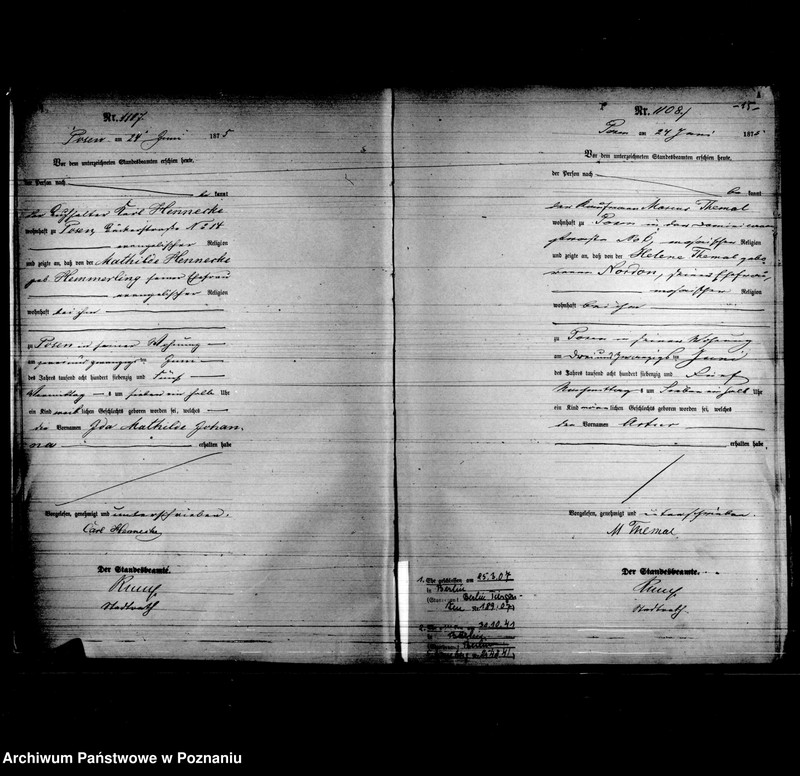 Nr. 1107
Posen am 24 Juni 1875
Vor dem unterzeichneten Standesbeamten erschien heute,
der Person nach
be kannt
der Karl Hennecke
wohnhaft zu Posen, N 214
evangelischer Religion
und zeigte an, daß von der Mathilde Hennecke
geb. Hemmerling seiner Ehefrau
evangelischer Religion
wohnhaft bei ihm
zu Posen in seiner Wohnung
am Juni
des Jahres tausend acht hundert siebenzig und fünf
mittag um sieben ein halb Uhr
ein Kind weiblichen Geschlechts geboren worden sei, welches
die Vornamen Ida Mathilde Johan-
na erhalten habe
Vorgelesen, genehmigt und unterschrieben.
Carl Hennecke
Der Standesbeamte.
Stadtrath
-15-
Nr. 1108
Posen am 24 Juni 1875
Vor dem unterzeichneten Standesbeamten erschien heute,
der Person nach
be kannt
der Kaufmann Marcus Themal
wohnhaft zu Posen
mosaischer Religion
und zeigte an, daß von der Helene Themal gebo-
renen Nordon, seiner Ehefrau,
mosaischer Religion
wohnhaft bei ihm
zu Posen in seiner Wohnung
am drei und zwanzigsten Juni
des Jahres tausend acht hundert siebenzig und fünf
Nachmittag um sieben ein halb Uhr
ein Kind männlichen Geschlechts geboren worden sei, welches
den Vornamen Artur
erhalten habe
Vorgelesen, genehmigt und unterschrieben.
M Themal
Der Standesbeamte.
Stadtrath
1. Ehe geschlossen am 25.3.07
in Berlin
Berlin
189.07
2. 31.10.41
Berlin
Berlin
Archiwum Państwowe w Poznaniu